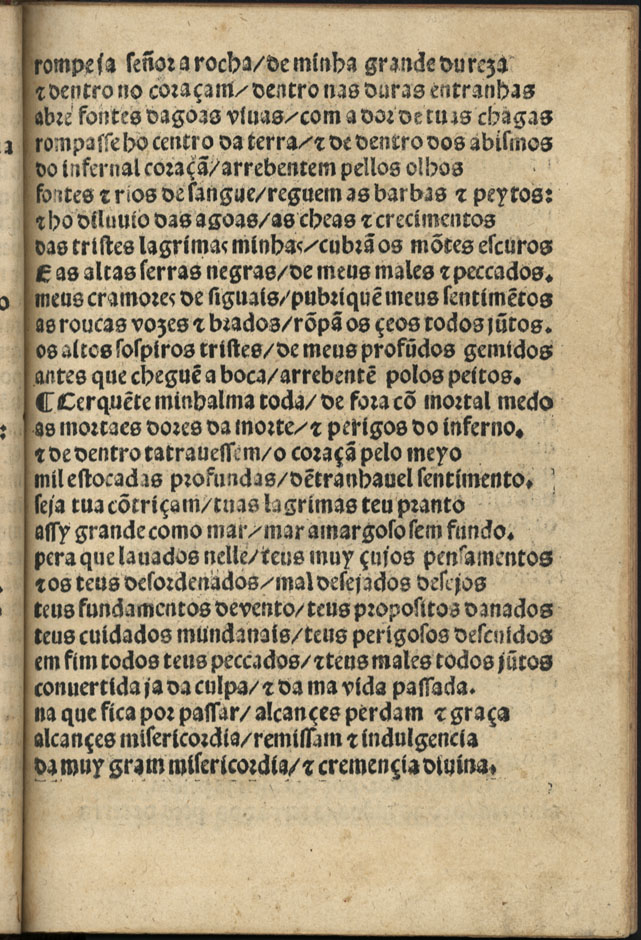 rompeja señor a rocha/de minha grande dureza
⁊ dentro no coraçam/dentro nas duras entranhas
abre fontes dagoas viuas/com a dor de tuas chagas
rompasse ho centro da terra/⁊ de dentro dos abismos
do infernal coraçã/arrebentem pellos olhos
fontes ⁊ rios de sangue/reguem as barbas ⁊ peytos:
⁊ ho diluuio das agoas/as cheas ⁊ crecimentos
das tristes lagrimas minhas/cubrã os mõtes escuros
E as altas serras negras/de meus males ⁊ peccados.
meus cramores de siguais/pubriquẽ meus sentimẽtos
as roucas vozes ⁊ brados/rõpã os çeos todos jũtos.
os altos sospiros tristes/de meus profũdos gemidos
antes que cheguẽ a boca/arrebentẽ polos peitos.
¶ Cerquẽte minhalma toda/de fora cõ mortal medo
as mortaes dores da morte/⁊ perigos do inferno.
⁊ de dentro tatrauessem/o coraçã pelo meyo
mil estocadas profundas/dẽtranhauel sentimento.
seja tua cõtriçam/tuas lagrimas teu pranto
assy grande como mar/mar amargoso sem fundo.
pera que lauados nelle/teus muy çujos pensamentos
⁊ os teus desordenados/mal desejados desejos
teus fundamentos de vento/teus propositos danados
teus cuidados mundanais/teus perigosos descuidos
em fim todos teus peccados/⁊ teus males todos jũtos
conuertida ja da culpa/⁊ da ma vida passada.
na que fica por passar/alcançes perdam ⁊ graça
alcançes misericordia/remissam ⁊ indulgencia
da muy gram misericordia/⁊ cremençia diuina.